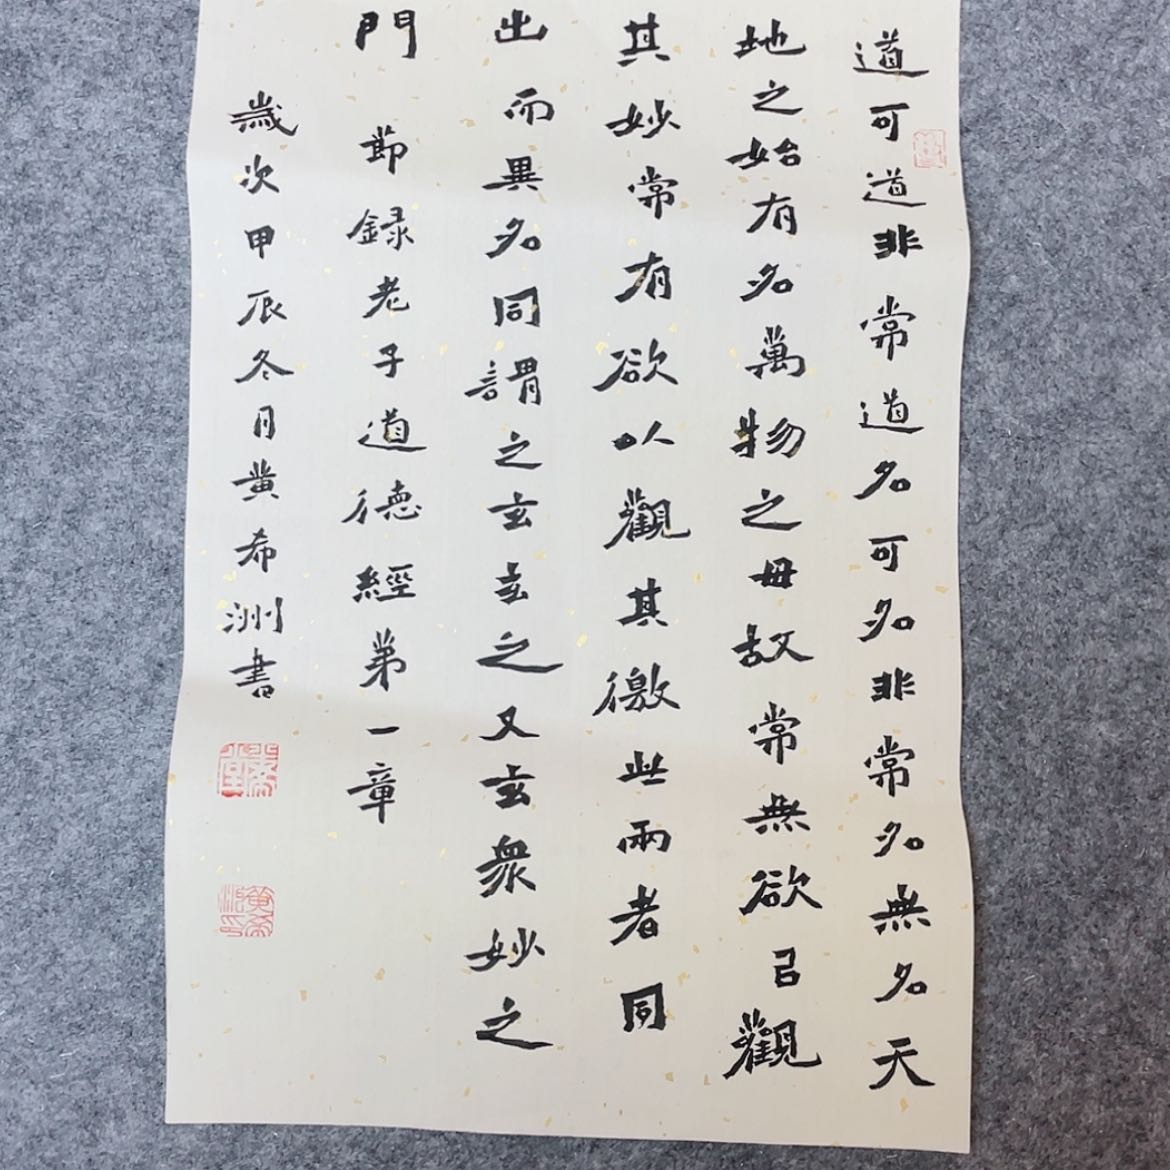 道可道非常道名可名非常名無名天
地之始有名萬物之母故常無欲㠯觀
其妙常有欲以觀其徼此兩者同
出而異名同謂之玄玄之又玄衆妙之
門 節録老子道德經第一章
歲次甲辰冬月黄希洲書